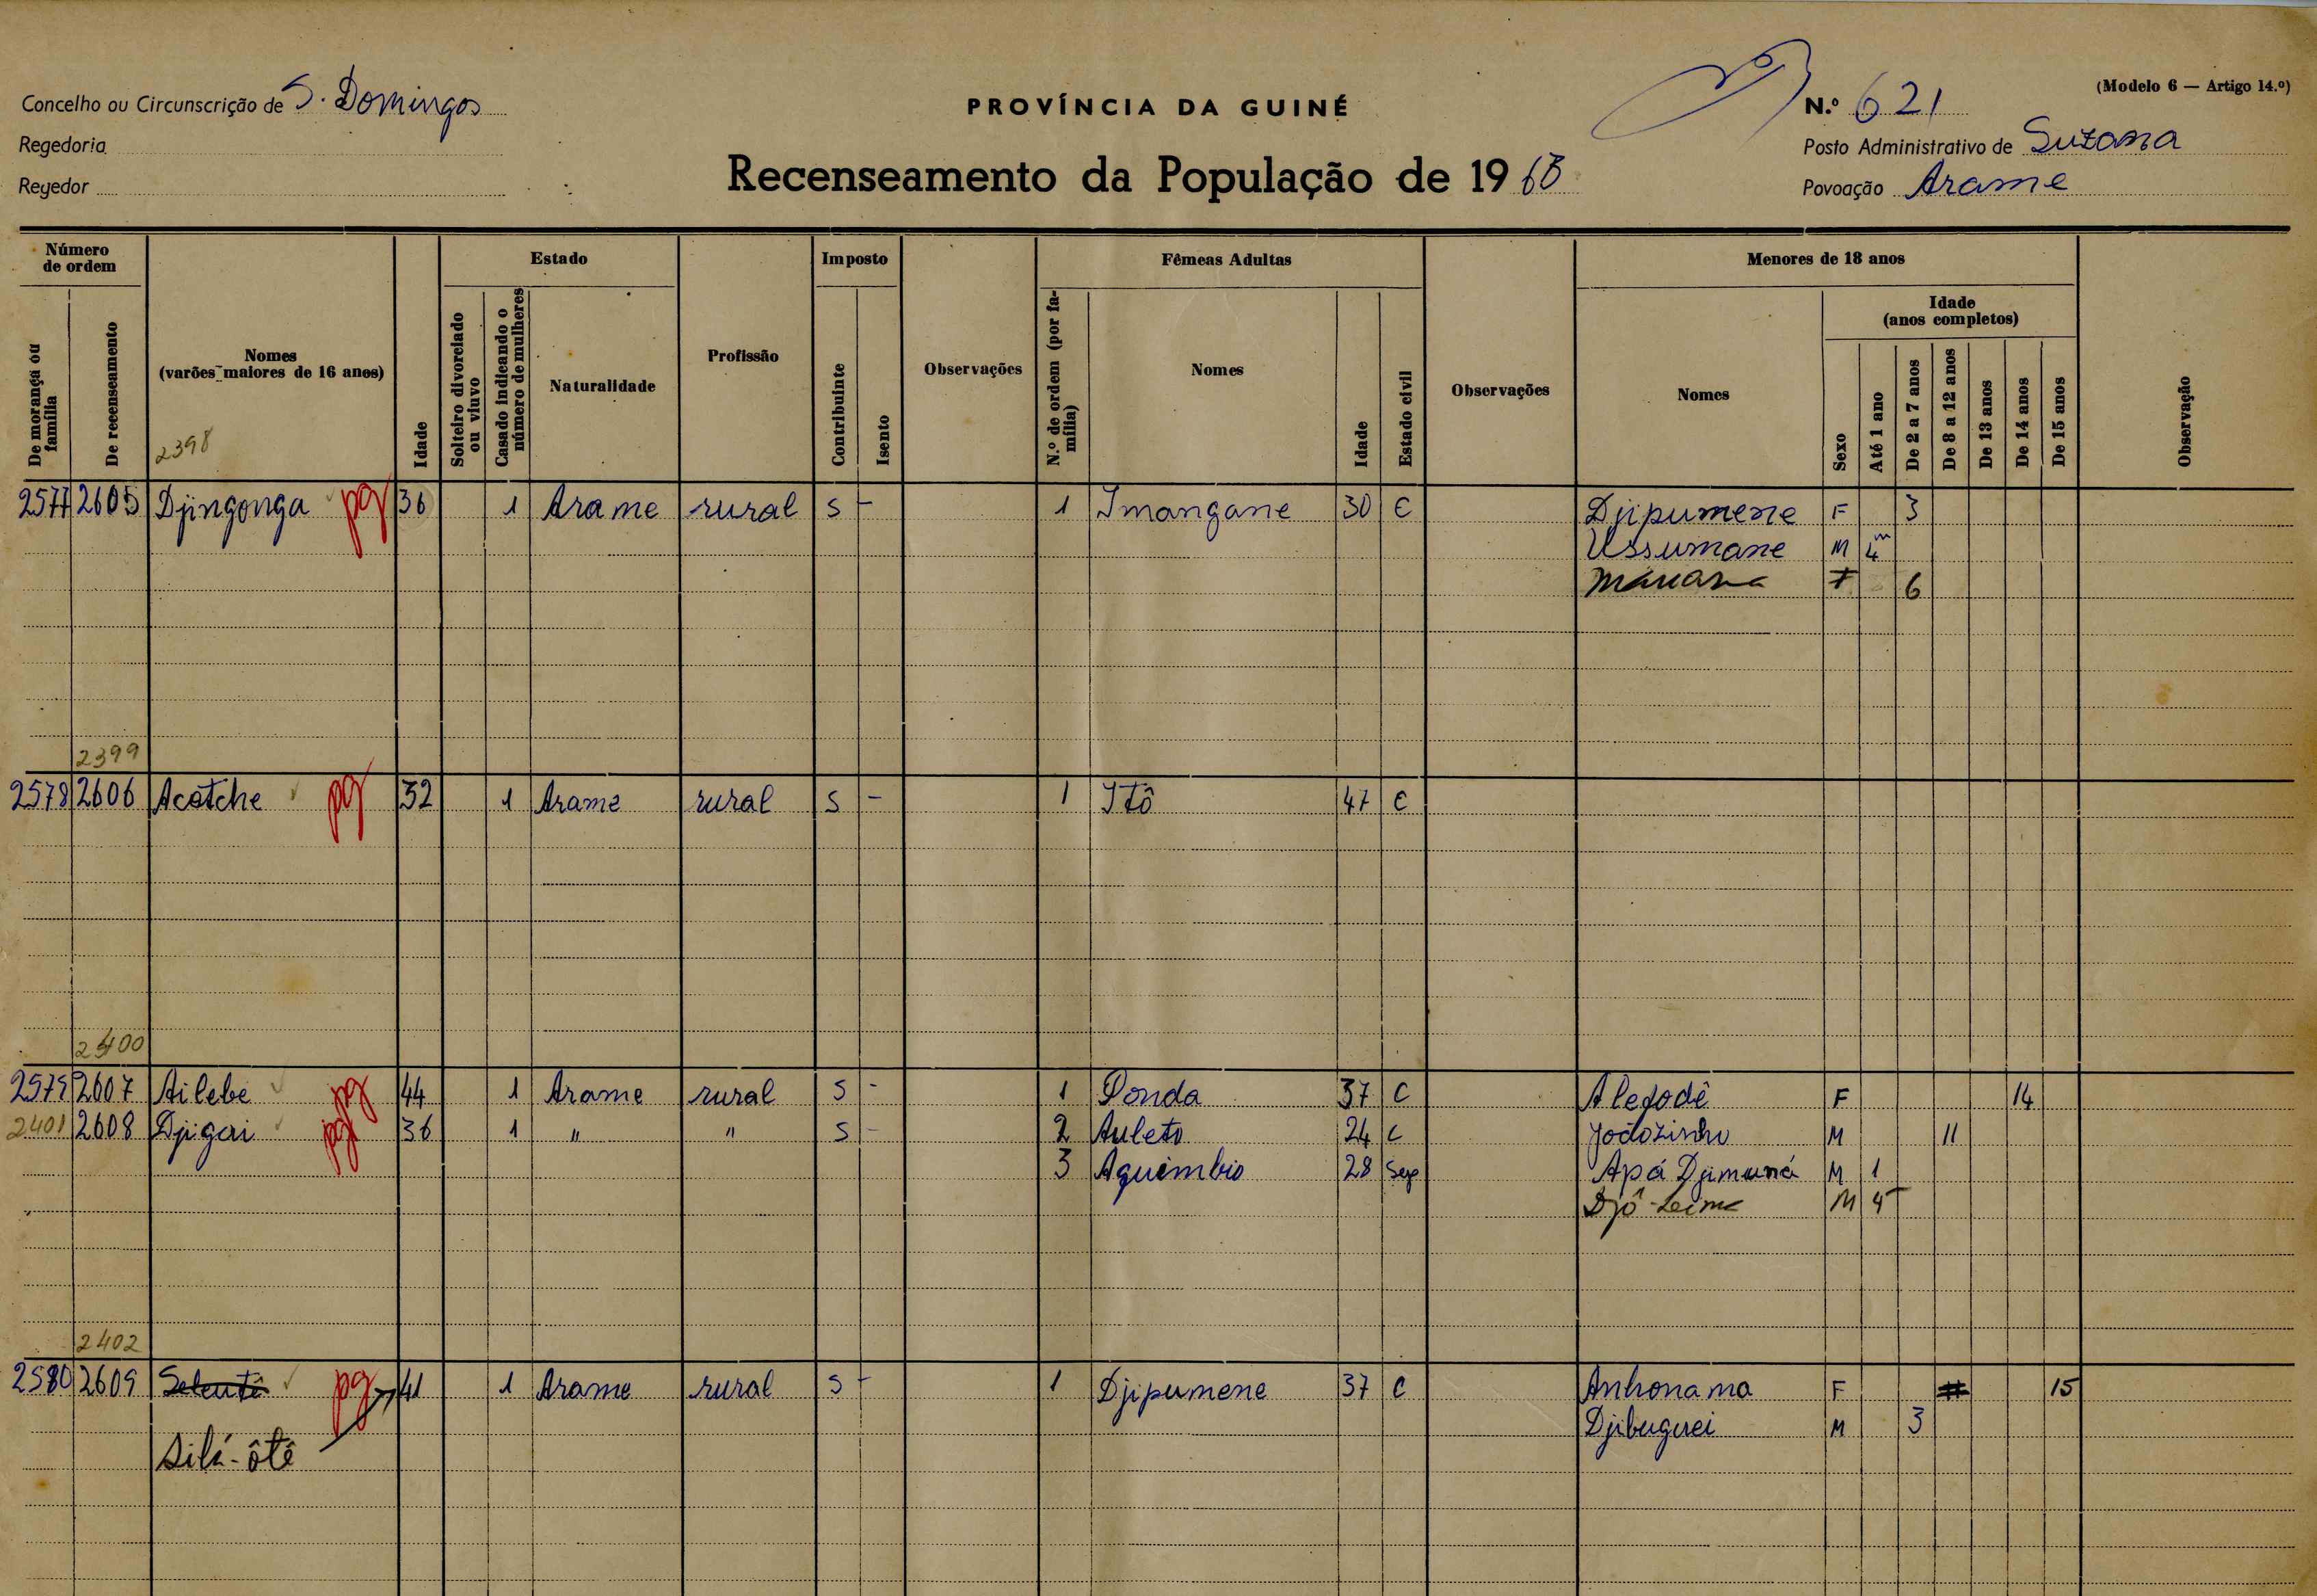 (Modelo 6 — Artigo 14.º)
Concelho ou Circunscrição de S. Domingos
PROVÍNCIA DA GUINÉ
N.º 621
Regedoria
Posto Administrativo de Suzana
Recenseamento da População de 1968
Regedor
Povoação Arame
Número de ordem
De morança ou família
De recenseamento
Nomes (varões maiores de 16 anos)
2398
Idade
Estado
Solteiro divorciado ou viuvo
Casado indicando o número de mulheres
Naturalidade
Profissão
Imposto
Contribuinte
Isento
Observações
Fêmeas Adultas
N.º de ordem (por família)
Nomes
Idade
Estado civil
Observações
Menores de 18 anos
Nomes
Sexo
Idade (anos completos)
Até 1 ano
De 2 a 7 anos
De 8 a 12 anos
De 13 anos
De 14 anos
De 15 anos
Observação
2577 2605 Djingonga pg 36 1 Arame rural S - 1 Imangane 30 C Djipumene F 3
Ussumane M 4m
F 6
2399
2578 2606 Acotche pg 32 1 Arame rural S - 1 Itô 47 C
2400
2579 2607 Ailebe pg 44 1 Arame rural S - 1 Donda 37 C Alegodê F 14
2401 2608 Djigai pg 36 1 " " S - 2 Auleto 24 C Jodozinho M 11
3 Aquimbio 28 Sep Apá Djimuná M 1
Djô-Leime M 4
2402
2580 2609 Selentê pg 41 1 Arame rural S - 1 Djipumene 37 C Anhonama F 15
Djibuguei M 3
Silá-ôtê